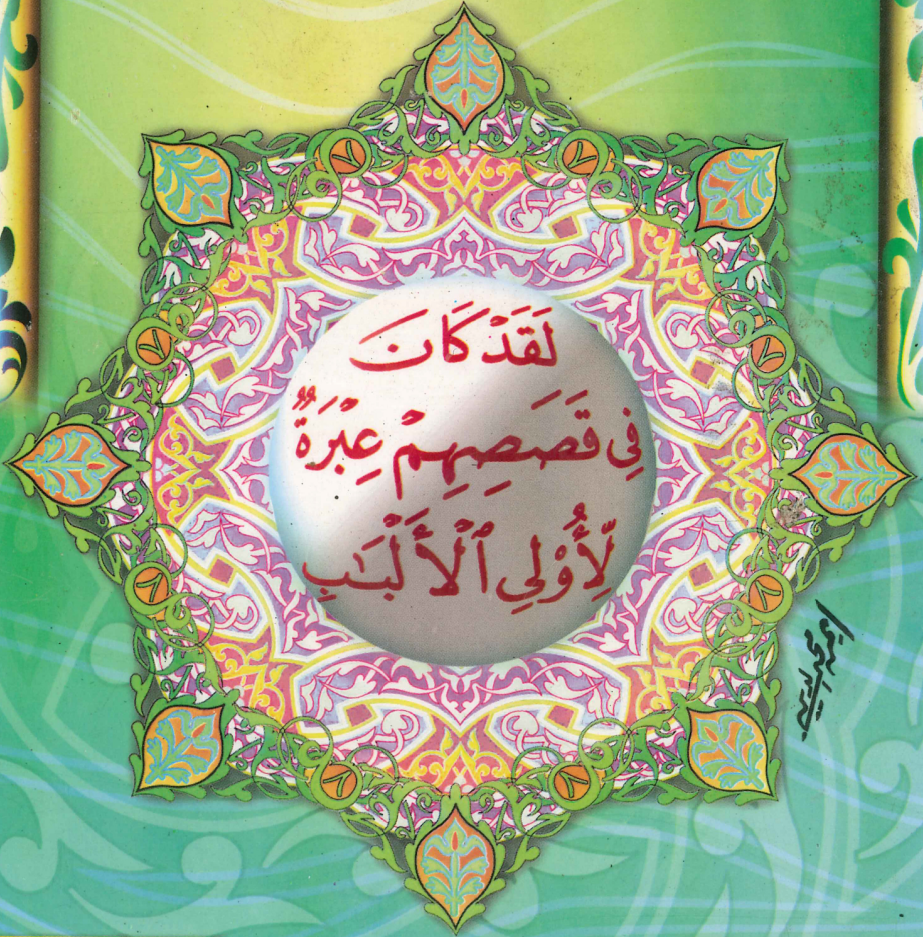 لَقَدْ كَانَ
فِي قَصَصِهِمْ عِبْرَةٌ
لِّأُوْلِي ٱلْأَلْبَٰبِ